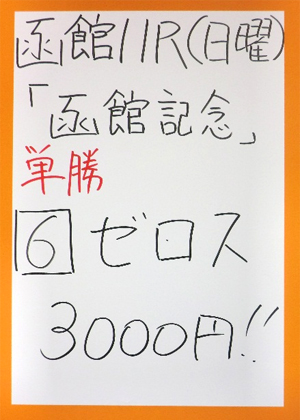 函館11R(日曜)
「函館記念」
単勝
6 ゼロス
3000円!!